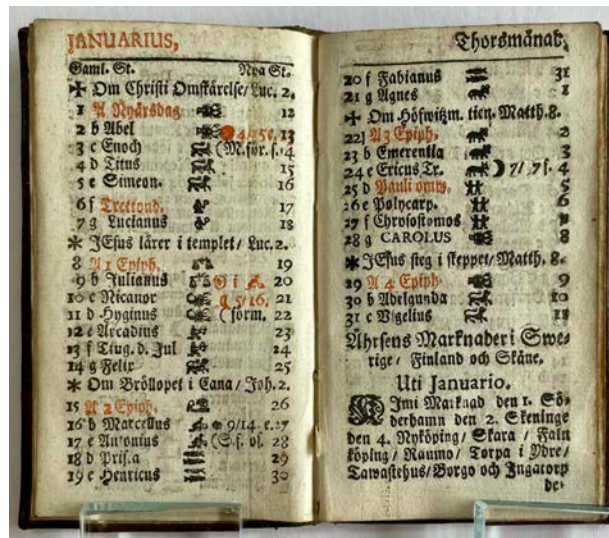 JANUARIUS,
Gaml. St. Nya St.
Om Christi Omskärelse/ Luc. 2.
1 A Nyårsdag 12
2 b Abel 13
3 c Enoch (M.för.f. 14
4 d Titus 15
5 e Simeon. 16
6 f Trettond. 17
7 g Lucianus 18
JEsus lärer i templet/ Luc. 2.
8 A 1 Epiph. 19
9 b Julianus 20
10 c Nicanor 5/16. 21
11 d Hyginus (förm. 22
12 e Arcadius 23
13 f Tiug. d. Jul 24
14 g Felix 25
Om Bröllopet i Cana/ Joh. 2.
15 A 2 Epiph. 26
16 b Marcellus 9/14 e. 27
17 e Antonius 28
18 d Prisca 29
19 e Henricus 30
Thorsmånad,
20 f Fabianus 31
21 g Agnes 1
Om Höfwitzm. tien. Matth. 8.
22 A 3 Epiph. 2
23 b Emerentia 3
24 e Ericus Tr. 4
25 d Pauli omw. 5
26 e Polycarp. 6
27 f Chrysostomos
28 g CAROLUS 8
JEsus steg i skeppet/ Matth. 8.
29 A 4 Epiph 9
30 b Adelgunda 10
31 c Vigelius 11
Åhrsens Marknader i Swe-
rige/ Finland och Skåne.
Uti Januario.
Jmi Marknad den 1. Sö-
derhamn den 2. Skeninge
den 4. Nyköping/ Skara / Faln
köping/ Raumo/ Torpa i Ydre/
Tawastehus/ Borgo och Ingatorp
de-